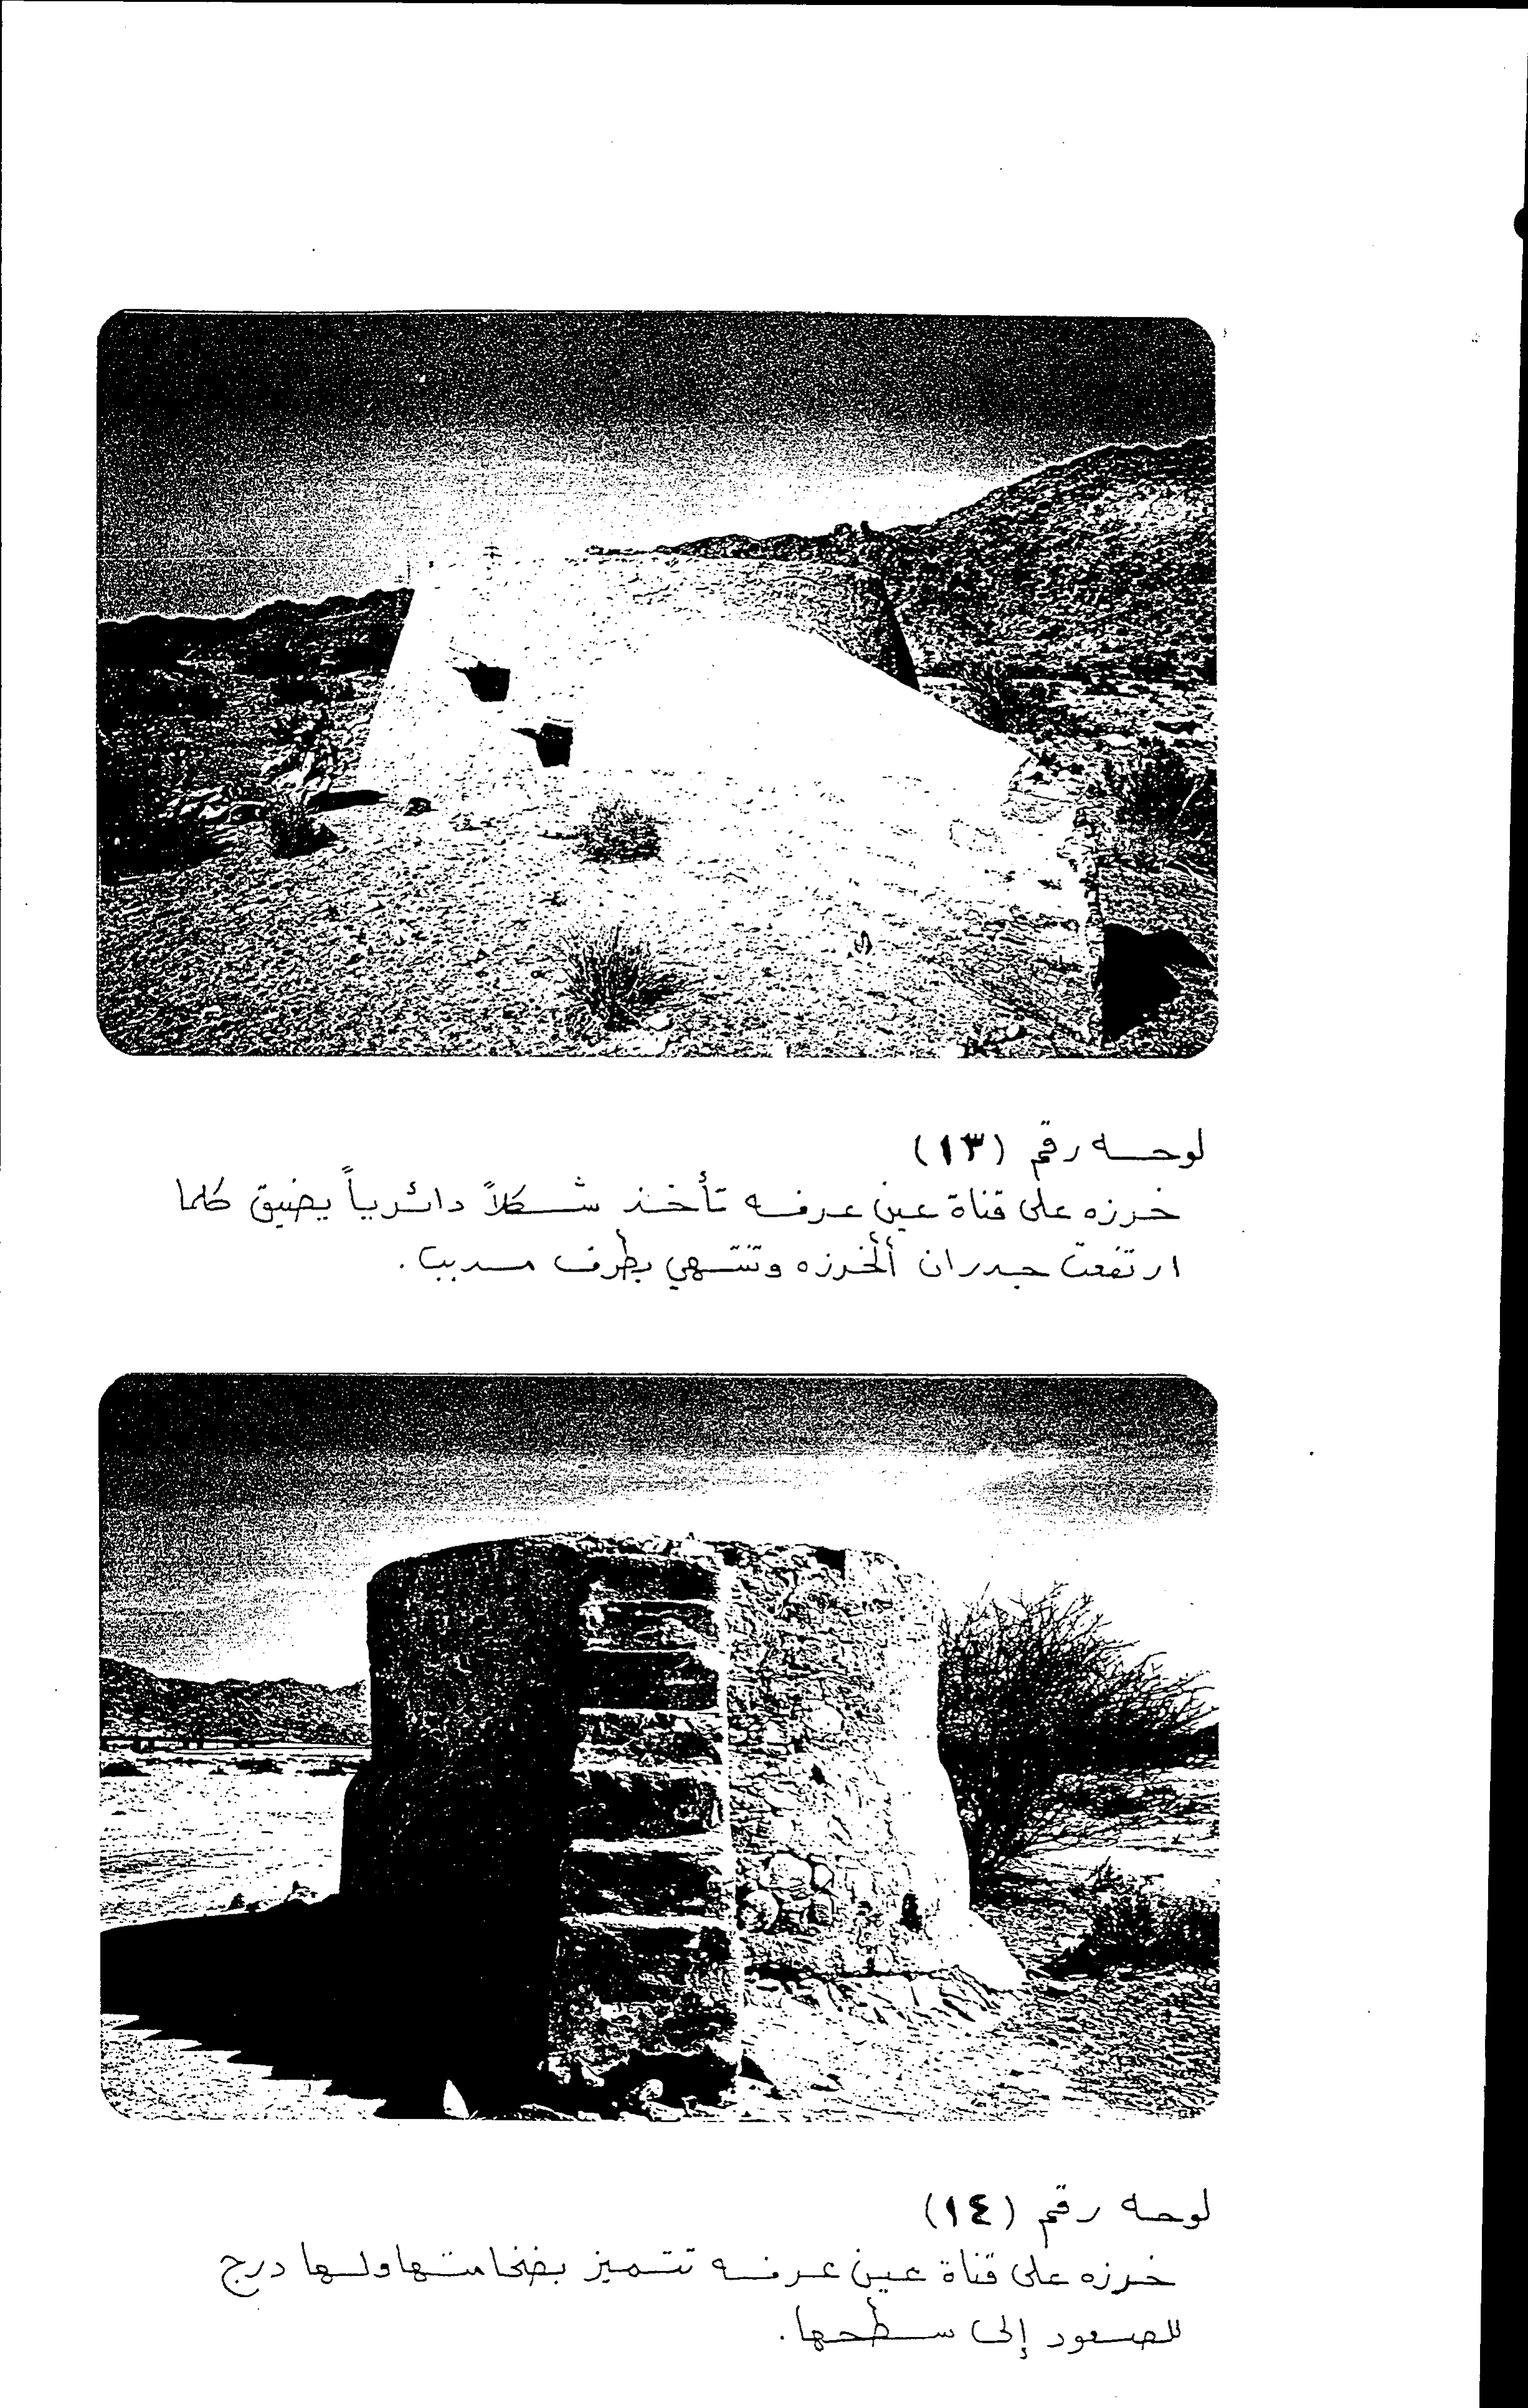 لوحه رقم (١٣)
خرزه على قناة عين عرفه تأخذ شكلاً دائرياً يضيق كلما
ارتفعت جدران الخرزه وتنتهي بطرف مدبب.
لوحه رقم (١٤)
خرزه على قناة عين عرفه تتميز بضخامتها ولها درج
للصعود إلى سطحها.